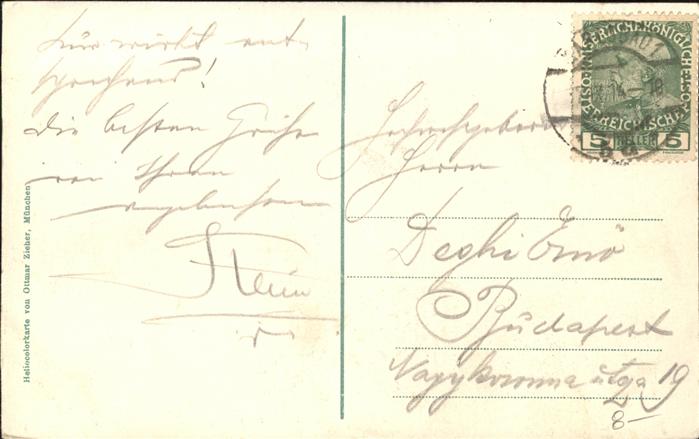 Kur wirkt ent-
sprechend!
Die besten Grüße
von Ihrem
ergebensten
Stein
Heliocolorkarte von Ottmar Zieher, München
KAISERLICHE KÖNIGLICHE
ÖSTERREICHISCHE POST
5 HELLER 5
Hochwohlgeboren
Herrn
Deghi Ernö
Budapest
Nagykorona utga 19
8-